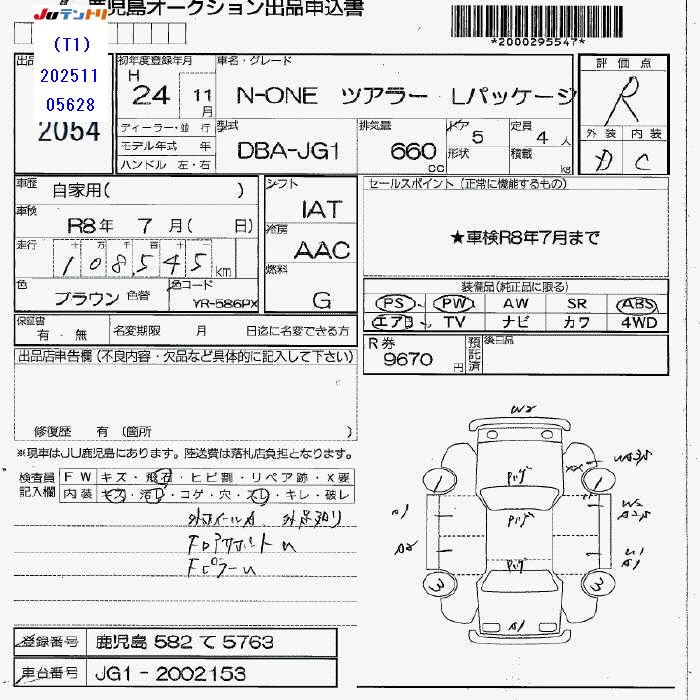 JUテントリ 鹿児島オークション出品申込書
*2000295547*
(T1)
202511
05628
2054
初年度登録年月
H
24 11月
車名・グレード
N-ONE ツアラー Lパッケージ
評価点
R
外装 内装
D C
ディーラー・並行
モデル年式 年
ハンドル 左・右
型式
DBA-JG1
排気量
660 cc
ドア 5
形状
定員 4 人
積載 kg
車歴 自家用( )
車検 R8年 7月( 日)
走行 十 万 千 百 十
108,545 km
色 ブラウン 色替
色コード YR-586PX
シフト IAT
冷房 AAC
燃料 G
セールスポイント (正常に機能するもの)
★車検R8年7月まで
装備品(純正品に限る)
PS PW AW SR ABS
エアB TV ナビ カワ 4WD
保証書 有・無
名変期限 月 日迄に名変できる方
R券 9670 円
預託済
後日品
出品店申告欄 (不良内容・欠品など具体的に記入して下さい)
修復歴 有 (箇所 )
※現車はJU鹿児島にあります。陸送費は落札店負担となります。
検査員記入欄
FW キズ・飛石・ヒビ割・リペア跡・X要
内装 キズ・汚れ・コゲ・穴・スレ・キレ・破レ
W2
1 1
3 3
A1
A2
A1
登録番号 鹿児島 582 て 5763
車台番号 JG1-2002153